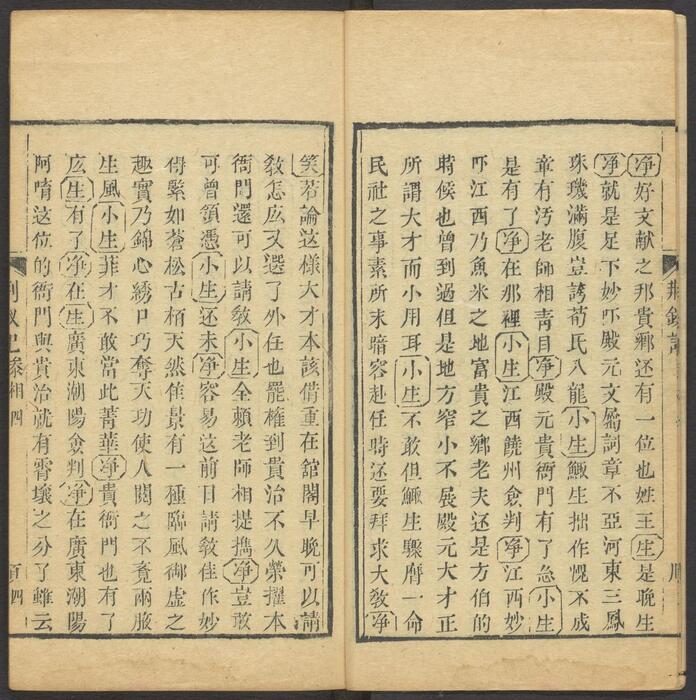 淨好文献之邦貴鄉还有一位也姓王生是晚生
淨就是足下妙吓殿元文屬詞章不亞河東三鳳
珠璣滿腹豈誇荀氏八龍小生鯫生拙作愧不成
章有汚老師相靑目淨殿元貴衙門有了么小生
是有了淨在那裡小生江西饒州僉判淨江西妙
吓江西乃魚米之地富貴之鄉老夫还是方伯的
時候也曾到過但是地方窄小不展殿元大才正
所謂大才而小用耳小生不敢但鯫生驟膺一命
民社之事素所未暗容赴任時还要拜求大敎淨
笑若論这樣大才本該借重在舘閣早晚可以請
敎怎庅又選了外任也罷權到貴治不久榮擢本
衙門還可以請敎小生全賴老師相提擕淨豈敢
可曾領憑小生还未淨容易这前日請敎佳作妙
得緊如蒼松古栢天然佳景有一種臨風御虛之
趣實乃錦心綉口巧奪天功使人閱之不覺兩腋
生風小生菲才不敢當此菁華淨貴衙門也有了
庅生有了淨在生廣東潮陽僉判淨在廣東潮陽
阿唷这位的衙門與貴治就有霄壤之分了雖云
荆釵記
荆釵記 叅相 四